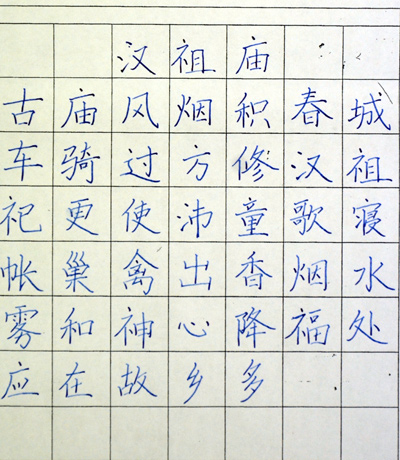 汉祖庙
古庙风烟积春城
车骑过方修汉祖
祀更使沛童歌寝
帐巢禽出香烟水
雾和神心降福处
应在故乡多